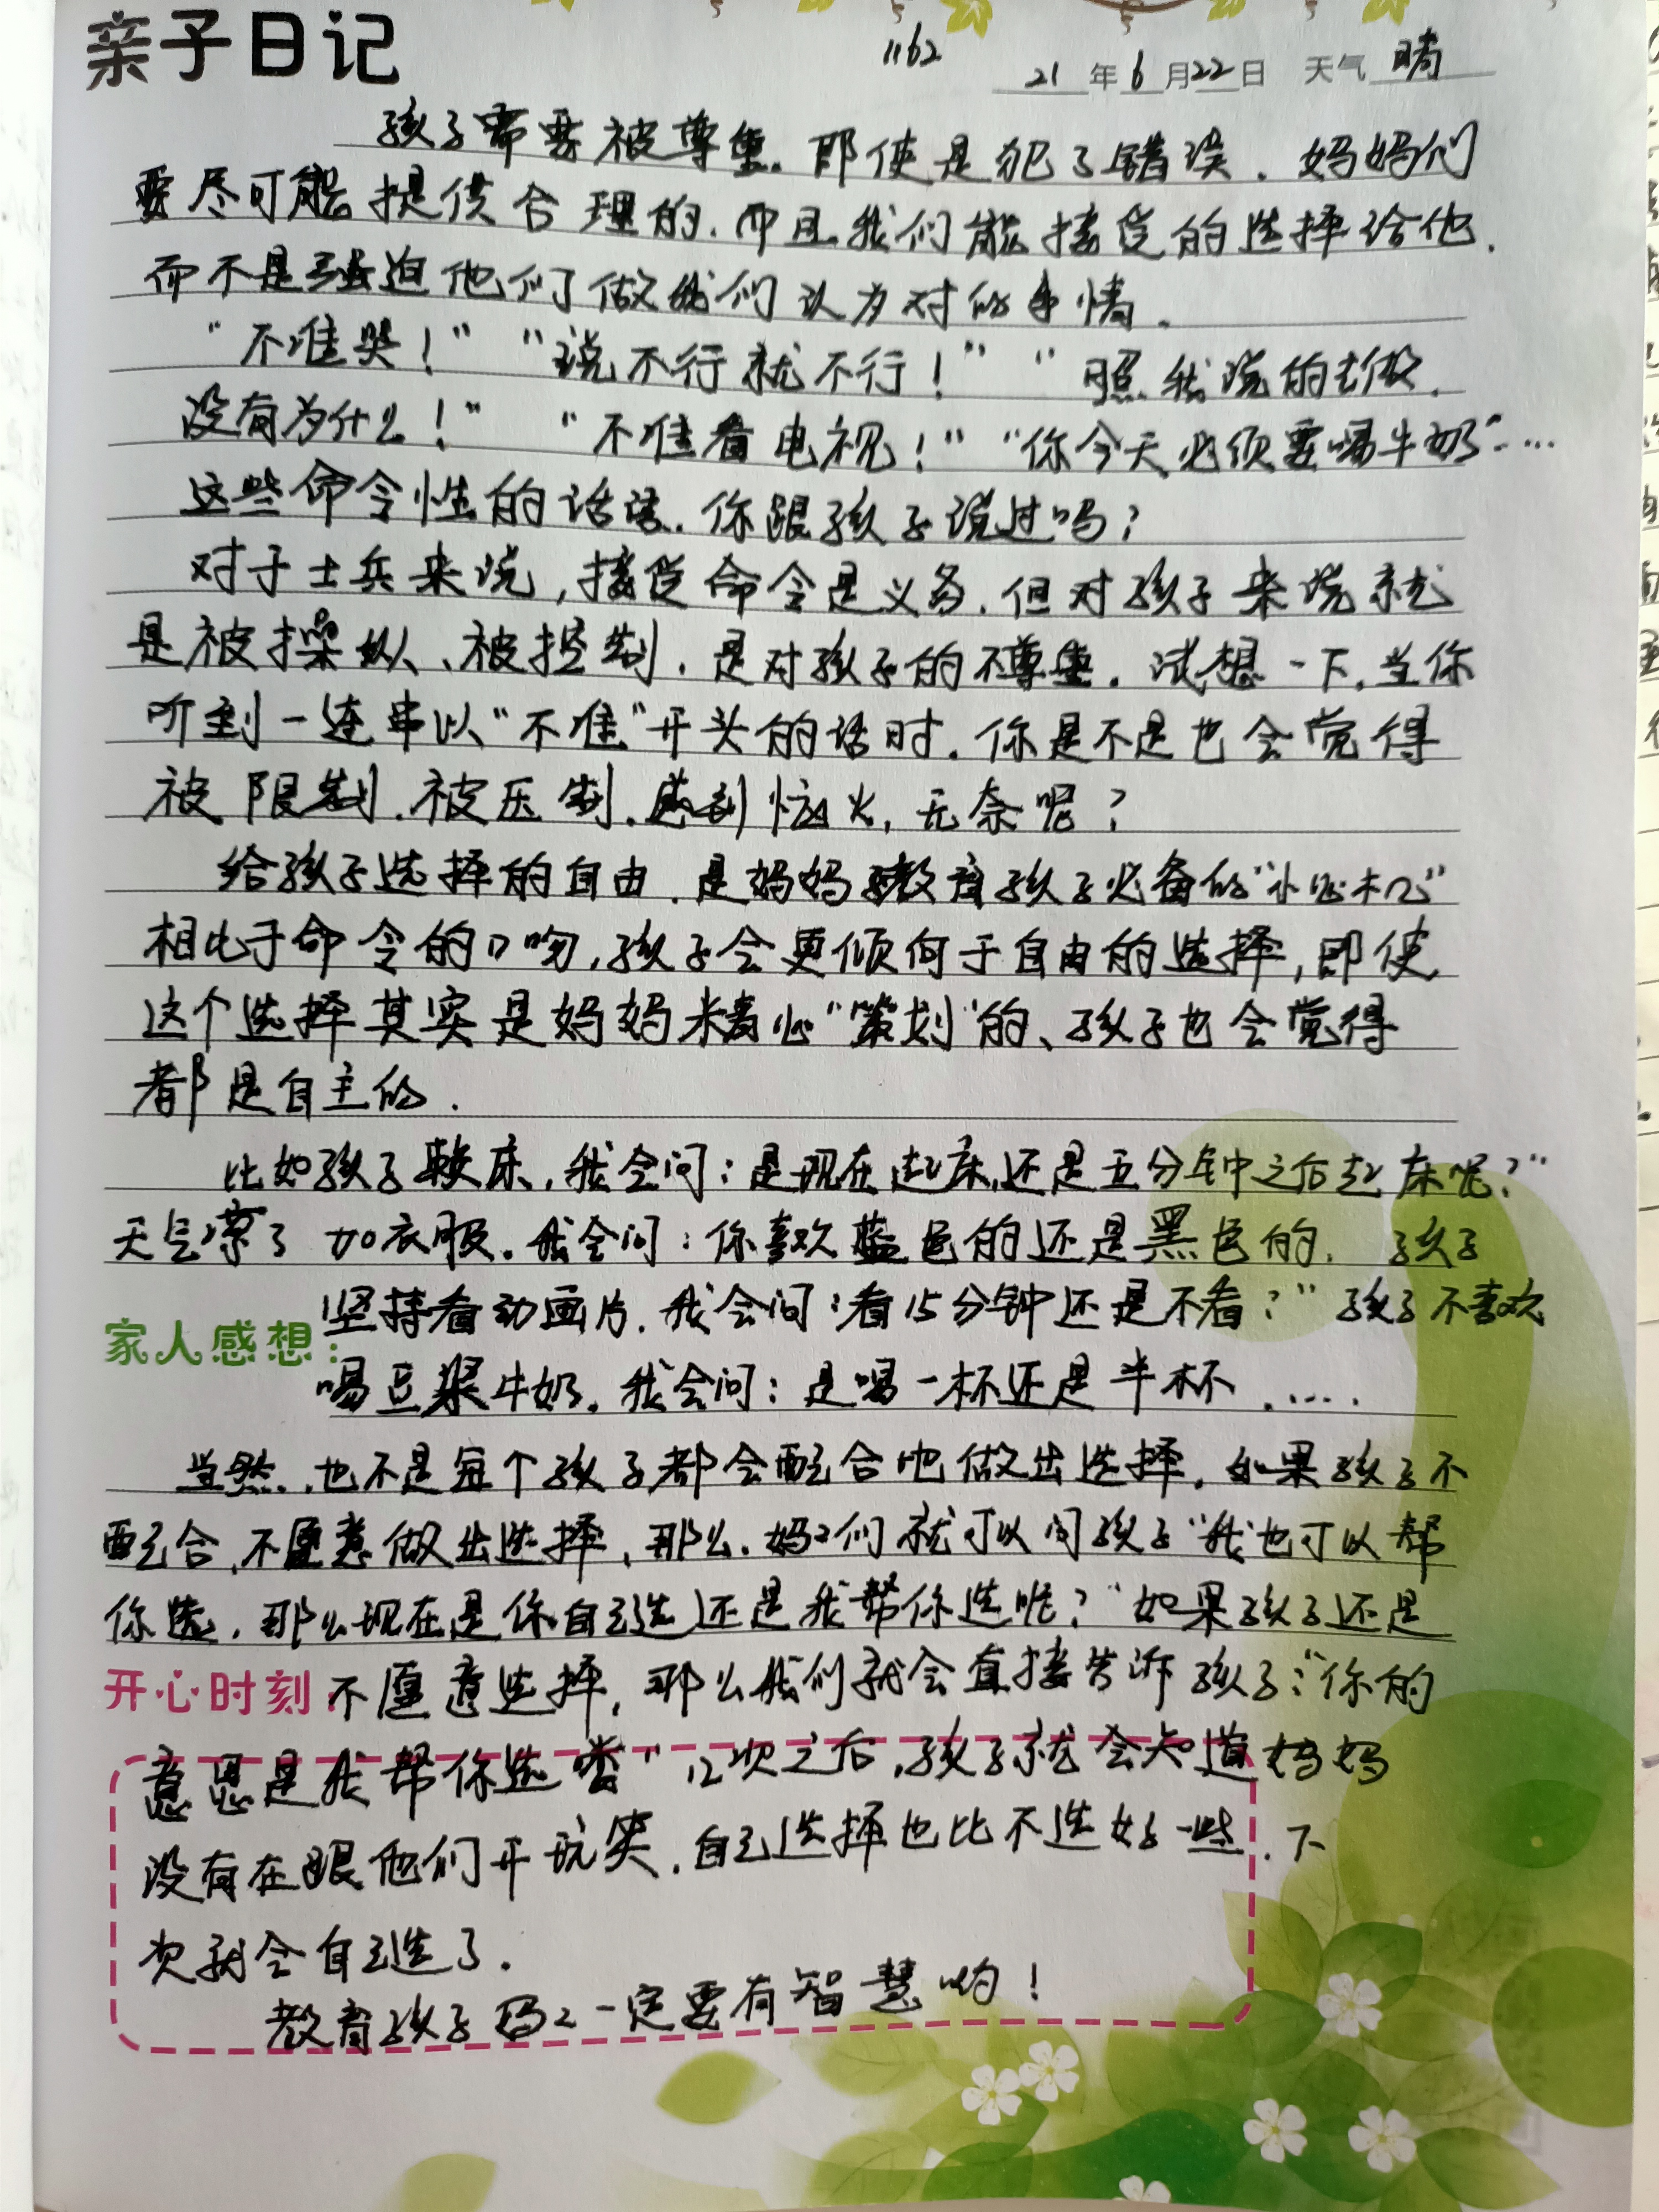 亲子日记
1162
21年6月22日 天气 晴
孩子需要被尊重.即使是犯了错误.妈妈们
要尽可能提供合理的.而且我们能接受的选择给他.
而不是强迫他们做我们认为对的事情.
"不准哭!" "说不行就不行!" "照我说的去做.
没有为什么!" "不准看电视!" "你今天必须要喝牛奶"……
这些命令性的话语.你跟孩子说过吗?
对于士兵来说,接受命令是义务.但对孩子来说就
是被操纵、被控制.是对孩子的不尊重.试想一下.当你
听到一连串以"不准"开头的话时.你是不是也会觉得
被限制.被压制.感到恼火,无奈呢?
给孩子选择的自由.是妈妈教育孩子必备的"小心机"
相比于命令的口吻,孩子会更倾向于自由的选择,即使
这个选择其实是妈妈精心"策划"的、孩子也会觉得
都是自主的.
比如孩子赖床,我会问:是现在起床,还是五分钟之后起床呢?"
天气凉了 加衣服.我会问:你喜欢蓝色的还是黑色的. 孩子
坚持看动画片.我会问:看15分钟还是不看?"孩子不喜欢
家人感想:
喝豆浆牛奶.我会问:是喝一杯还是半杯.……
当然.也不是每个孩子都会配合地做出选择.如果孩子不
配合.不愿意做出选择,那么.妈2们就可以问孩子"我也可以帮
你选.那么现在是你自己选还是我帮你选呢?"如果孩子还是
开心时刻:不愿意选择,那么我们就会直接告诉孩子:"你的
意思是我帮你选喽"几次之后,孩子就会知道妈妈
没有在跟他们开玩笑.自己选择也比不选好一些.下
次就会自己选了.
教育孩子妈2一定要有智慧哟!